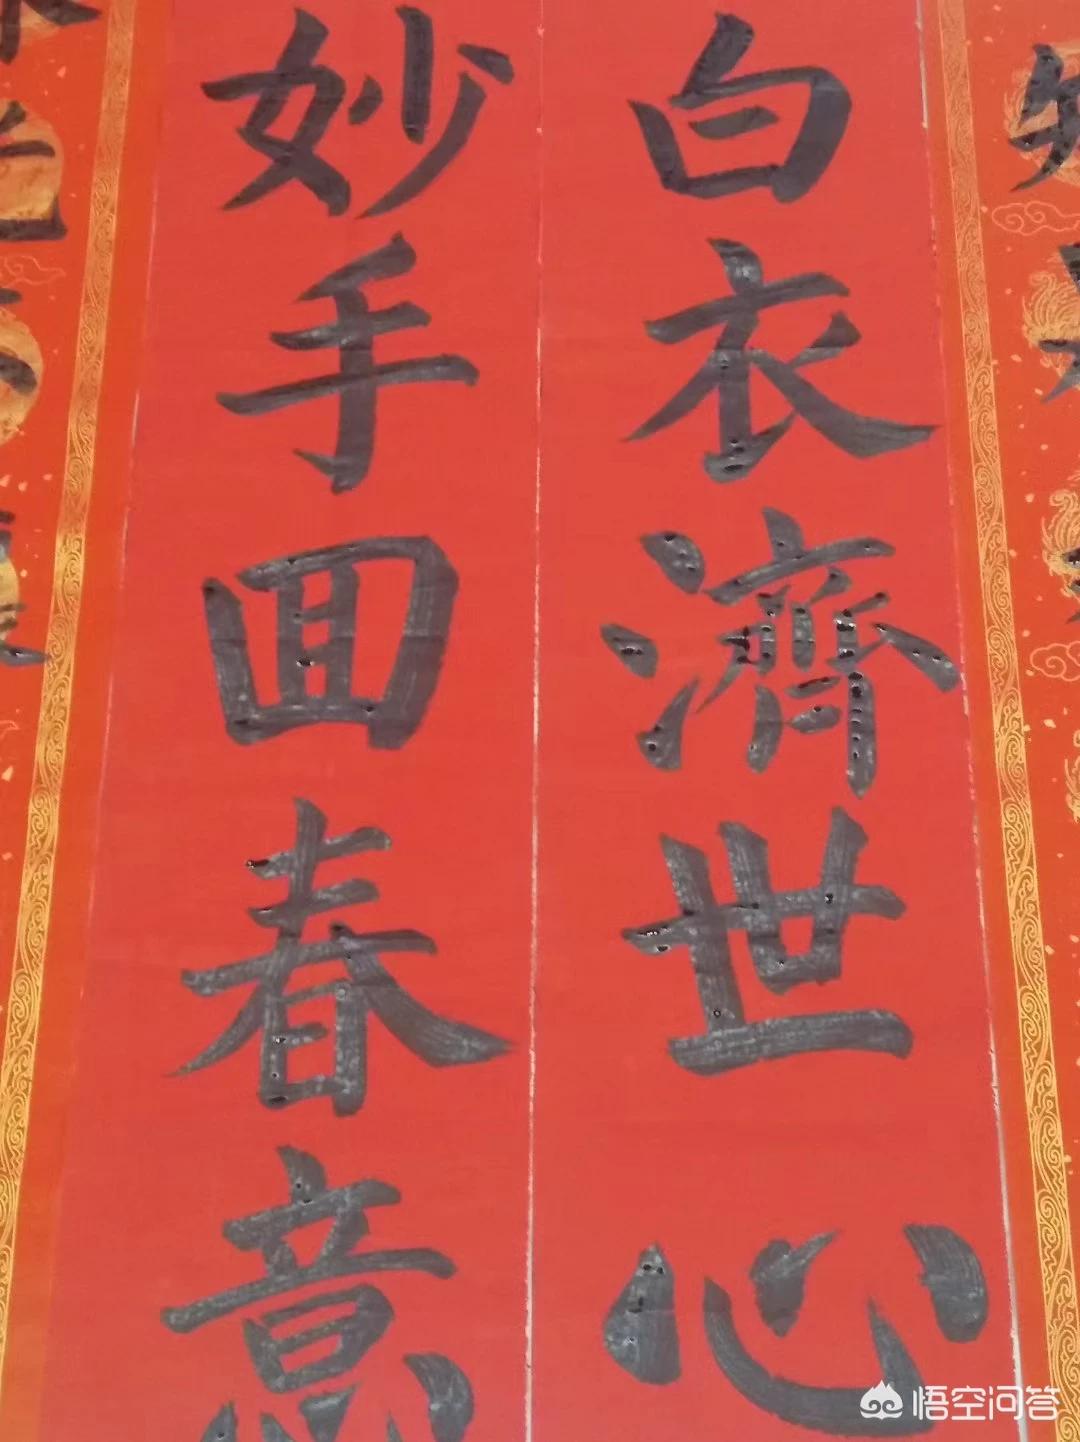 白衣濟世心
妙手囬春意
悟空问答